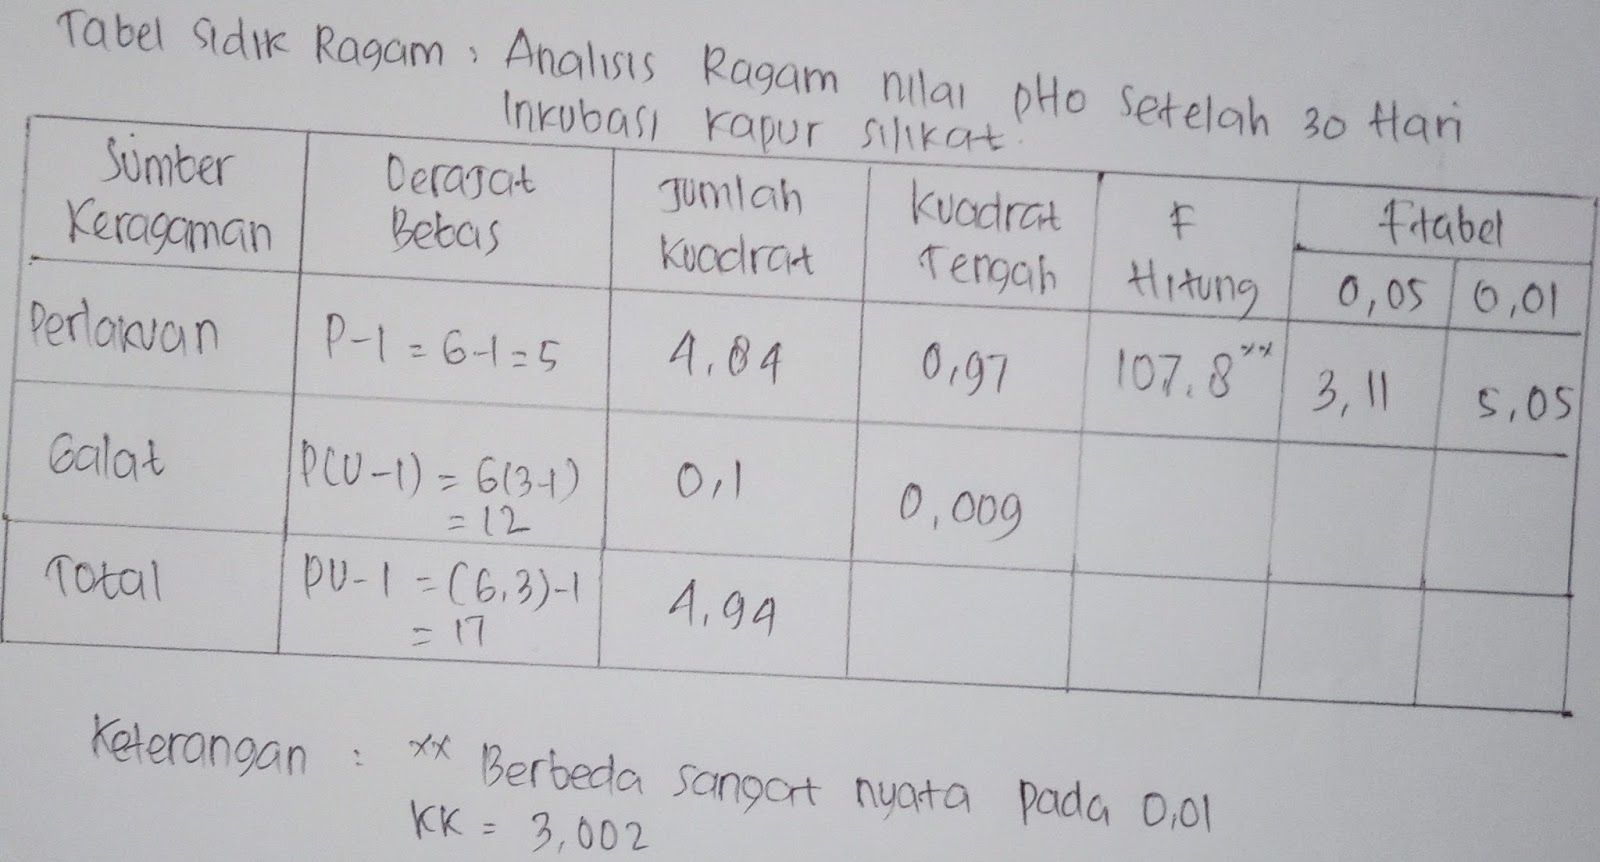 Tabel Sidik Ragam : Analisis Ragam nilai pH0 Setelah 30 Hari
Inkubasi Kapur Silikat.
Sumber Keragaman
Derajat Bebas
Jumlah Kuadrat
Kuadrat Tengah
F Hitung
F.tabel
0,05
0,01
Perlakuan
P-1 = 6-1 = 5
4,84
0,97
107,8**
3,11
5,05
Galat
P(U-1) = 6(3-1)
= 12
0,1
0,009
Total
PU-1 = (6.3)-1
= 17
4,94
Keterangan : ** Berbeda sangat nyata pada 0,01
KK = 3,002